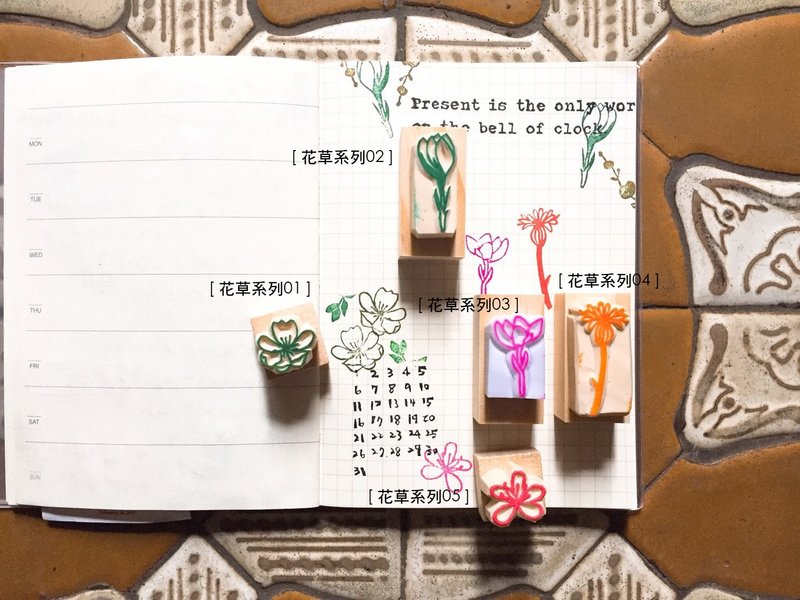 Present is the only wor
on the bell of clock.
[ 花草系列02 ]
[ 花草系列01 ]
[ 花草系列03 ]
[ 花草系列04 ]
[ 花草系列05 ]
MON
TUE
WED
THU
FRI
SAT
SUN
2 3 4 5
6 7 8 9 10
11 12 13 14 15
16 17 18 19 20
21 22 23 24 25
26 27 28 29 30
31